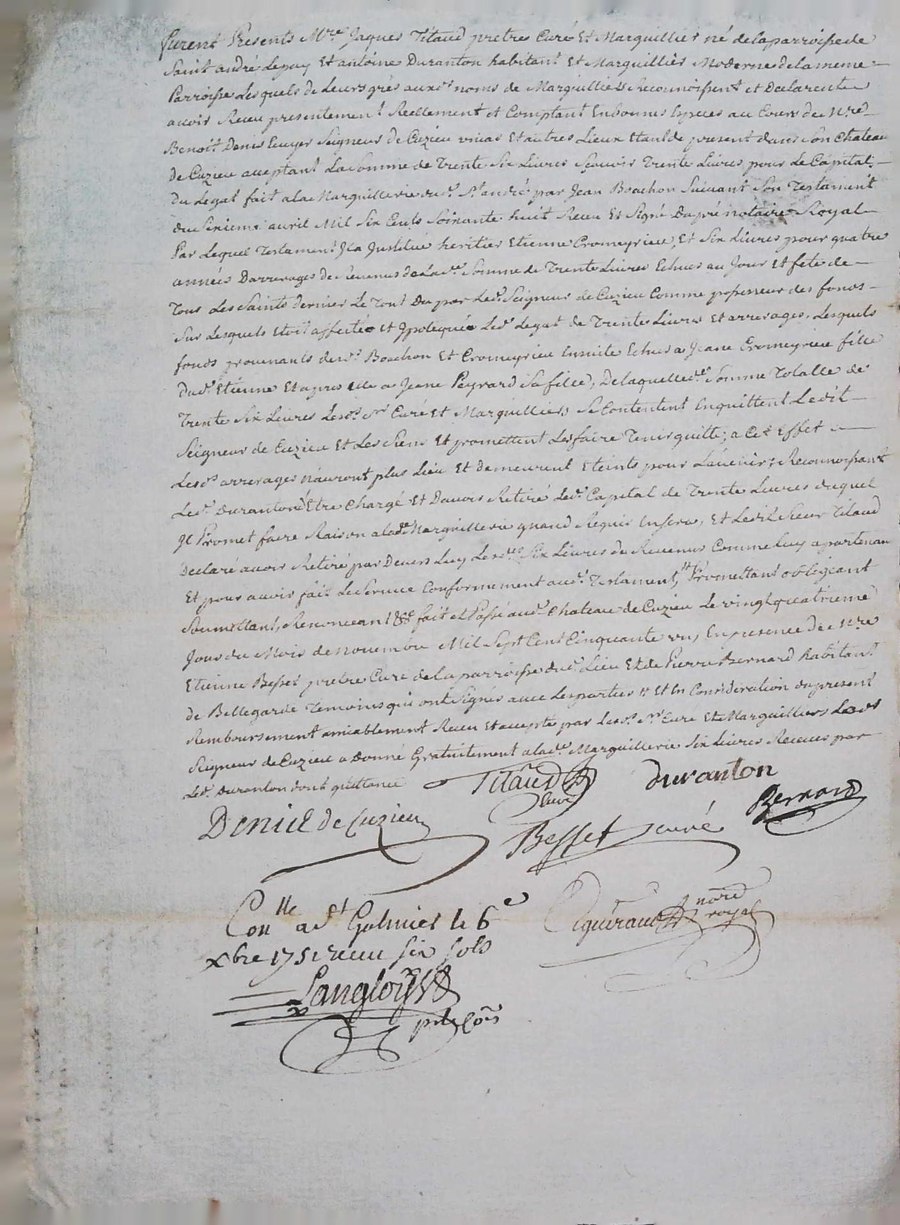 furent Presents Mre Jaques Titaud pretres Curé Et Marguillier né de la parroisse de
Saint andré Lepuy Et antoine Duranton habitant Et Marguilliés Moderne de la meme
Parroisse Lesquels de Leurs grés aux noms de Marguilliers Reconnoissent et Declarent
avoir Receu presentement Reellement et Comptant En bonnes Especes au Cours de Mre
Benoit Deniel Ecuyer Seigneur de Cuzieu unias Et autres Lieux Etant de present dans Son Chateau
de Cuzieu acceptant La Somme de Trente Six Livres Sçavoir Trente Livres pour Le Capital
Du Legat fait a la Marguillerie du St andré par Jean Bouchon Suivant Son Testament
du Sixieme avril Mil Six Cents Soixante huit Receu Et Signé Dupré notaire Royal
Par Lequel Testament Il a Institué heritier Etienne Cromeyrieu, Et Six Livres pour quatre
années Darrerages de Revenus de Lade Somme de Trente Livres Echus au Jour Et fete de
Tous Les Saints dernier Le Tout Du par Ledt Seigneur de Cuzieu Comme possesseur des fonds
Sur Lesquels Etoit affectée et Ypotequée Ledt Legat de Trente Livres Et arrerages, Lesquels
fonds provenants dudt Bouchon Et Cromeyrieu Ensuite Echus a Jeane Cromeyrieu fille
dudt Etienne Et apres elle a Jeane Peyrard Sa fille, De laquelle de Somme Totalle de
Trente Six Livres Lesds Srs Curé Et Marguilliers Se Contentent Enquittent Ledit
Seigneur de Cuzieu Et Les Siens Et promettent Les faire Tenir quitte; a Cet Effet
Lesds arrerages n'auront plus Lieu Et demeurent Eteints pour Lavenir; Reconnoissant
Ledt Duranton Etre Chargé Et Davoir Retiré Ledt Capital de Trente Livres duquel
Il Promet faire Raison a lade Marguillerie quand Requis En sera, Et Ledit Sieur Titaud
Declare avoir Retiré par Devers Luy Lesdes Six Livres de Revenus Comme Luy apartenan
Et pour avoir fait Le Service Conformement audt Testament, Promettant obligeant
Soumettant, Renoncean fait et Passé audt Chateau de Cuzieu Le vingt quatrieme
Jour du Mois de novembre Mil Sept Cent Cinquante un, En presence de Mre
Etienne Besset pretre Curé de La parroisse dudt Lieu Et de Pierre Bernard habitant
de Bellegarde Temoins qui ont Signés avec Les parties Et En Consideration du present
Remboursement amiablement Receu Et accepté par Lesds Srs Curé Et Marguilliers Ledt
Seigneur de Cuzieu a Donné Gratuitement a lade Marguillerie Six Livres Receues par
Ledt Duranton dont quittance
Titaud Curé duranton
Deniel de Cuzieu Besset curé Bernard
Conlle a St Galmier le 6e
xbre 1751 receu six sols
royal
Langlois